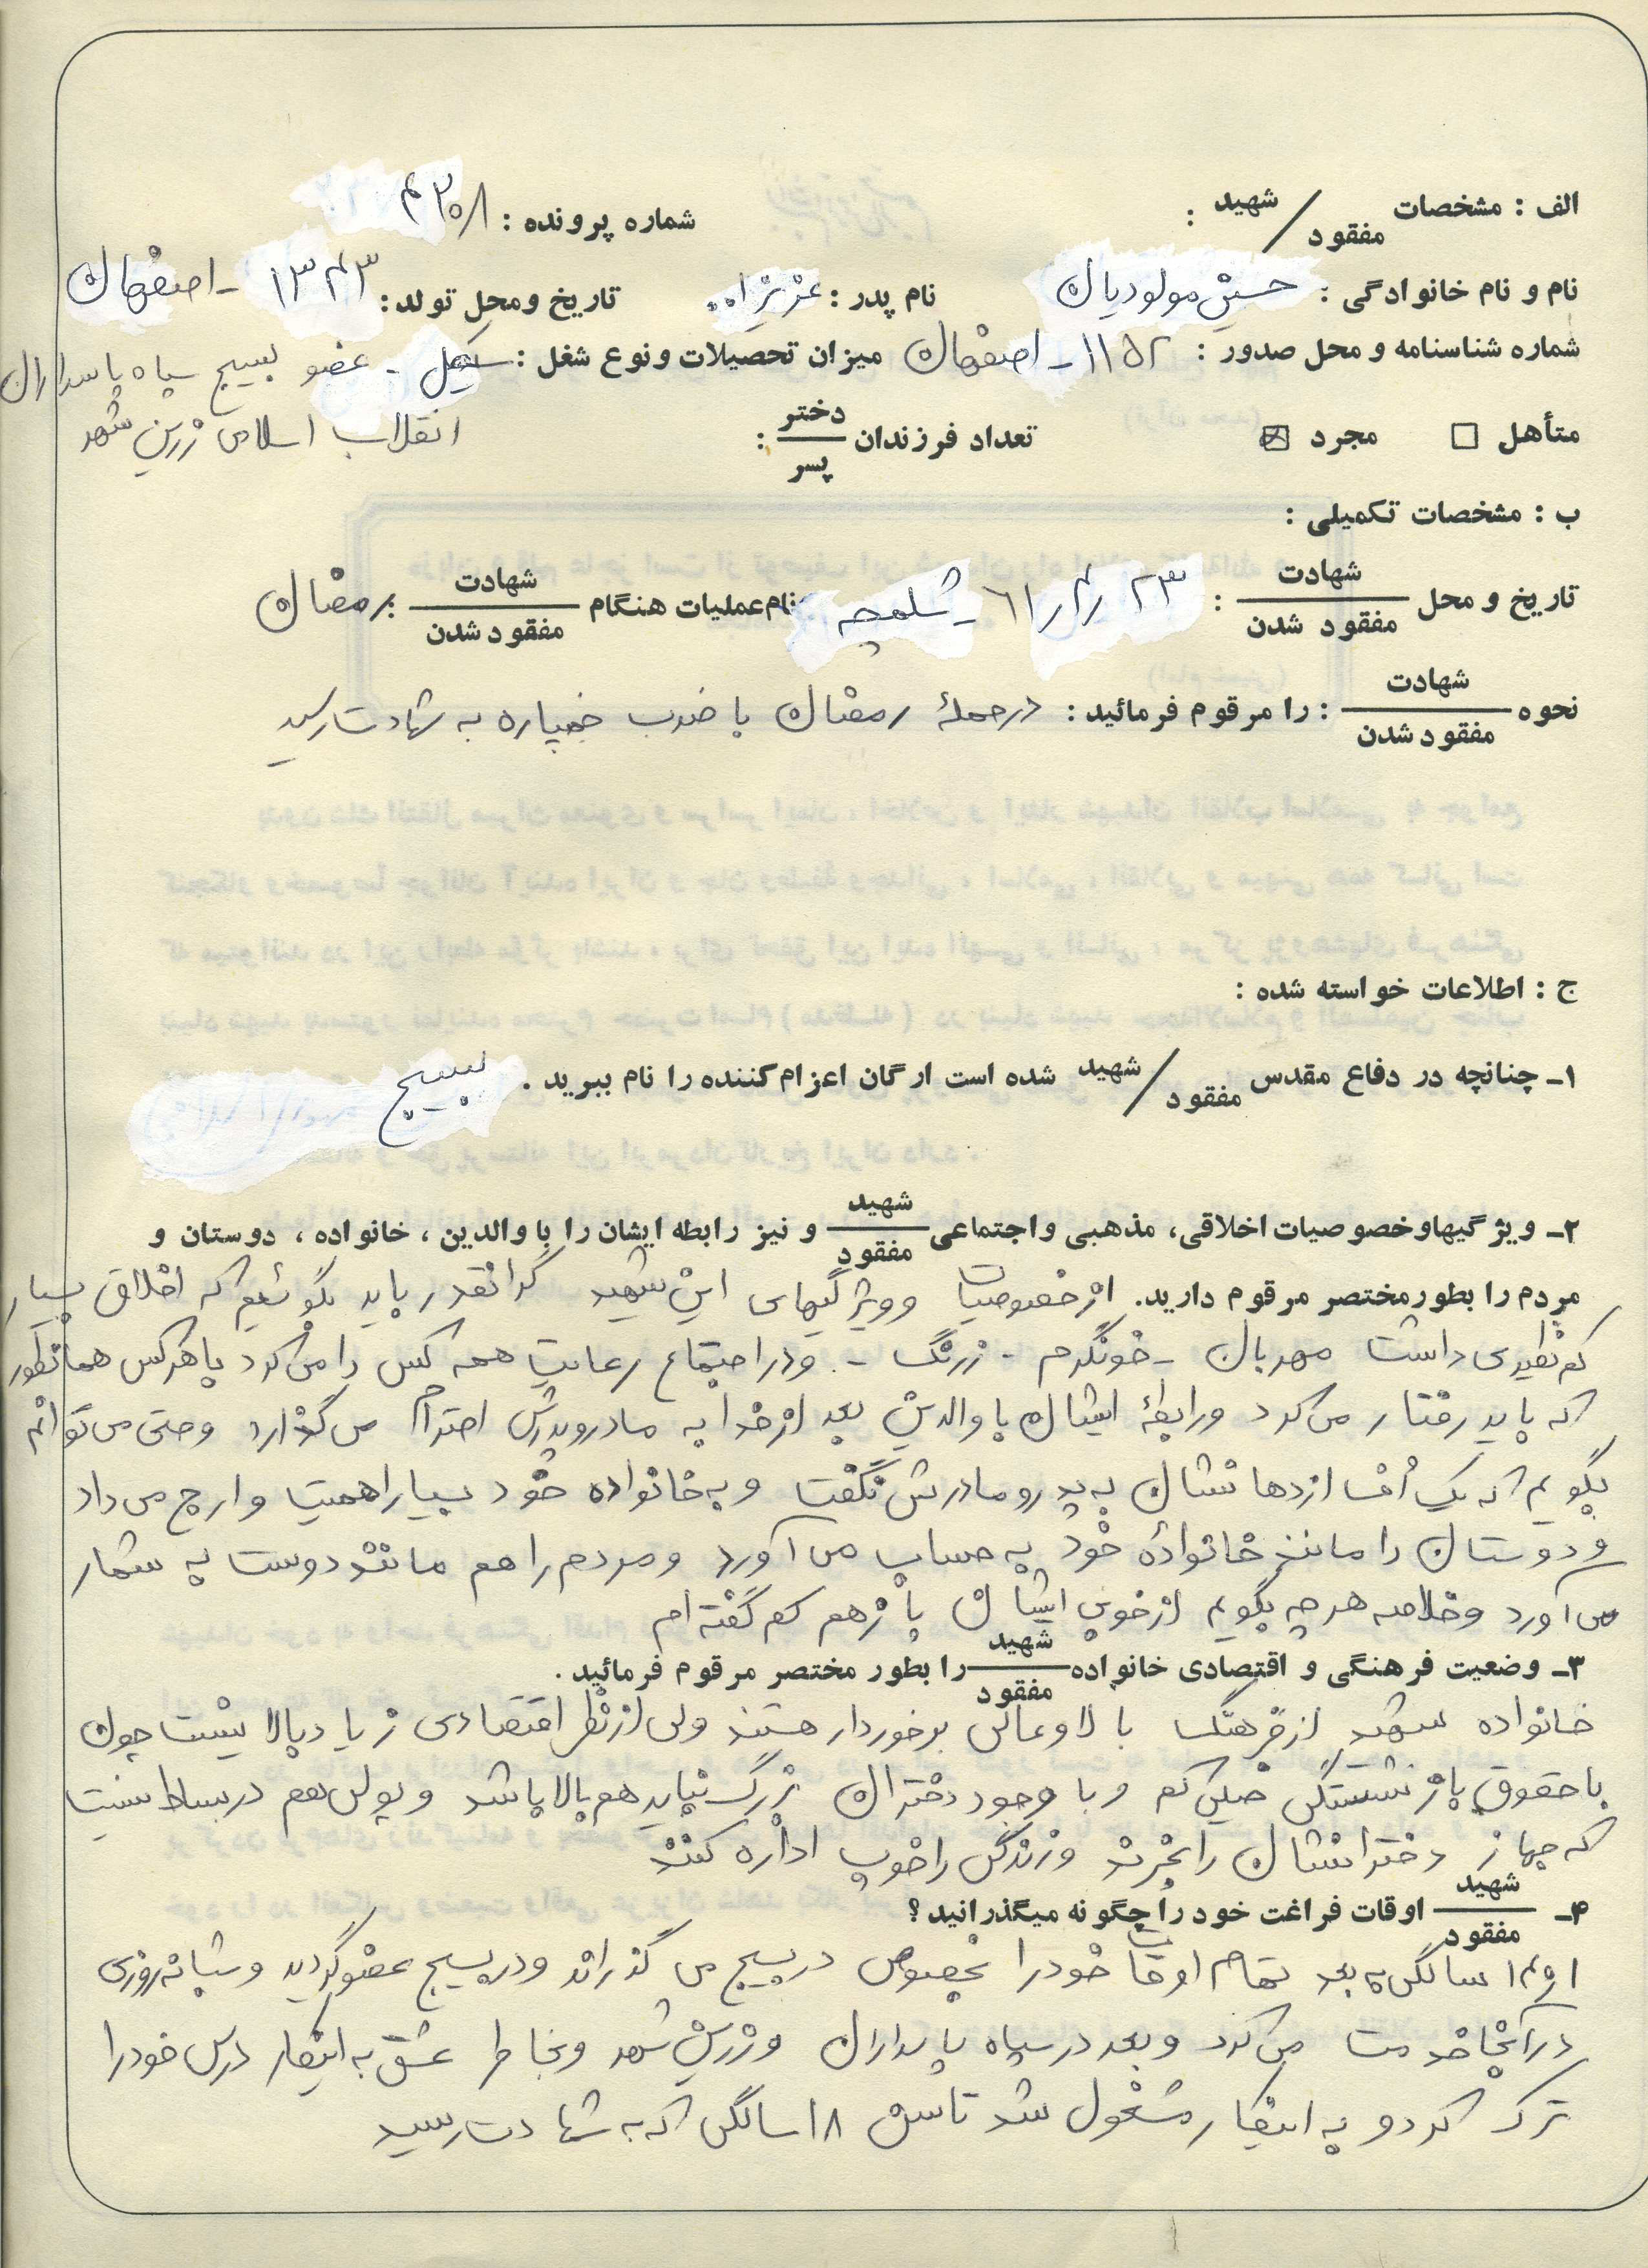 الف : مشخصات شهید / مفقود :
شماره پرونده :
نام و نام خانوادگی : حسین مولودیان نام پدر : عزیزاله تاریخ ومحل تولد : ۱۳۴۳ - اصفهان
شماره شناسنامه و محل صدور : ۱۱۵۲ - اصفهان میزان تحصیلات ونوع شغل : - عضو بسیج سپاه پاسداران
انقلاب اسلامی زرین شهر
متأهل □ مجرد ☒ تعداد فرزندان دختر / پسر :
ب : مشخصات تکمیلی :
تاریخ و محل شهادت / مفقود شدن : ۶۱/۴/۲۳ - شلمچه نام عملیات هنگام شهادت / مفقود شدن : رمضان
نحوه شهادت / مفقود شدن : را مرقوم فرمائید : در حملهٔ رمضان با ضرب خمپاره به شهادت رسید
ج : اطلاعات خواسته شده :
۱- چنانچه در دفاع مقدس شهید / مفقود شده است ارگان اعزام کننده را نام ببرید . بسیج
۲- ویژگیهاوخصوصیات اخلاقی، مذهبی واجتماعی شهید / مفقود و نیز رابطه ایشان را با والدین ، خانواده ، دوستان و
مردم را بطورمختصر مرقوم دارید. از خصوصیات و ویژگیهای این شهید گرانقدر باید بگوئیم که اخلاق بسیار
کم نظیری داشت مهربان - خونگرم - زرنگ - و در اجتماع رعایت همه کس را می کرد با هرکس همانطور
که باید رفتار می کرد و رابطهٔ ایشان با والدین بعد از خدا به مادر و پدرش احترام می گذارد و حتی می توانم
بگویم که یک اُف از دهانشان به پدر و مادرش نگفت و به خانواده خود بسیار اهمیت و ارج می داد
و دوستان را مانند خانوادهٔ خود به حساب می آورد و مردم را هم مانند دوست به شمار
می آورد و خلاصه هر چه بگویم از خوبی ایشان باز هم کم گفته ام
۳- وضعیت فرهنگی و اقتصادی خانواده شهید / مفقود را بطور مختصر مرقوم فرمائید .
خانواده شهید از فرهنگ بالا و عالی برخوردار هستند ولی از نظر اقتصادی زیاد بالا نیست چون
با حقوق بازنشستگی خیلی کم و با وجود دختران بزرگ نباید هم بالا باشد و پولی هم در بساط نیست
که جهاز دخترانشان را بخرند و زندگی را خوب اداره کنند
۴- شهید / مفقود اوقات فراغت خود را چگونه میگذرانید ؟
از ۱۴ سالگی به بعد تمام اوقات خود را بخصوص در بسیج می گذراند و در بسیج عضو گردید و شبانه روزی
در آنجا خدمت می کرد و بعد در سپاه پاسداران و زرین شهر و بخاطر عشق به اینکار درس خود را
ترک کرد و به اینکار مشغول شد تا سن ۱۸ سالگی که به شهادت رسید